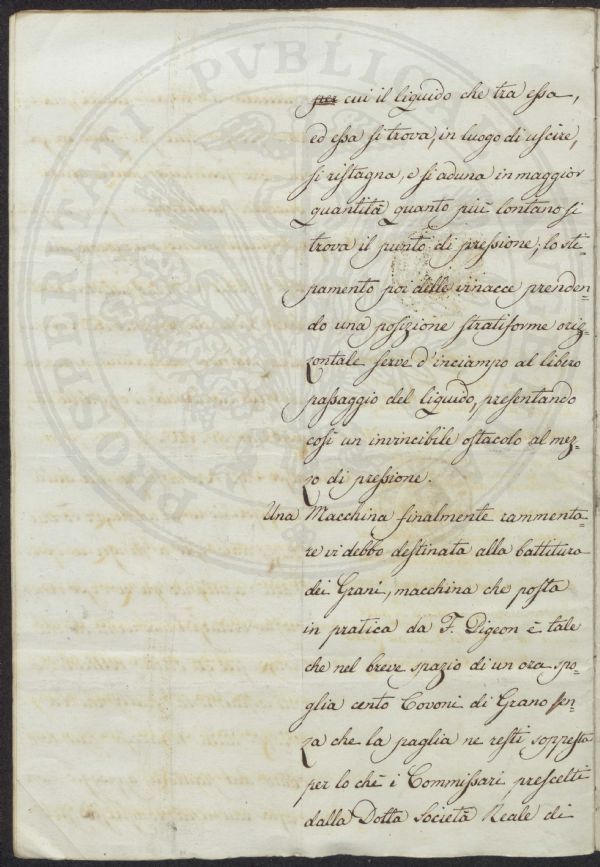 per cui il liquido che tra essa,
ed essa si trova, in luogo di uscire,
si ristagna, e si aduna in maggior
quantità quanto più lontano si
trova il punto di pressione; lo sti-
pamento poi delle vinacce prenden-
do una posizione stratiforme oriz-
zontale serve d'inciampo al libero
passaggio del liquido, presentando
così un invincibile ostacolo al mez-
zo di pressione.
Una Macchina finalmente rammenta-
re vi debbo destinata alla battitura
dei Grani, macchina che posta
in pratica da F. Digeon è tale
che nel breve spazio di un ora spo-
glia cento Covoni di Grano sen-
za che la paglia ne resti soppesta
per lo chè i Commissari prescelti
dalla Dotta Società Reale di
PROSPERITATI PVBLICAE